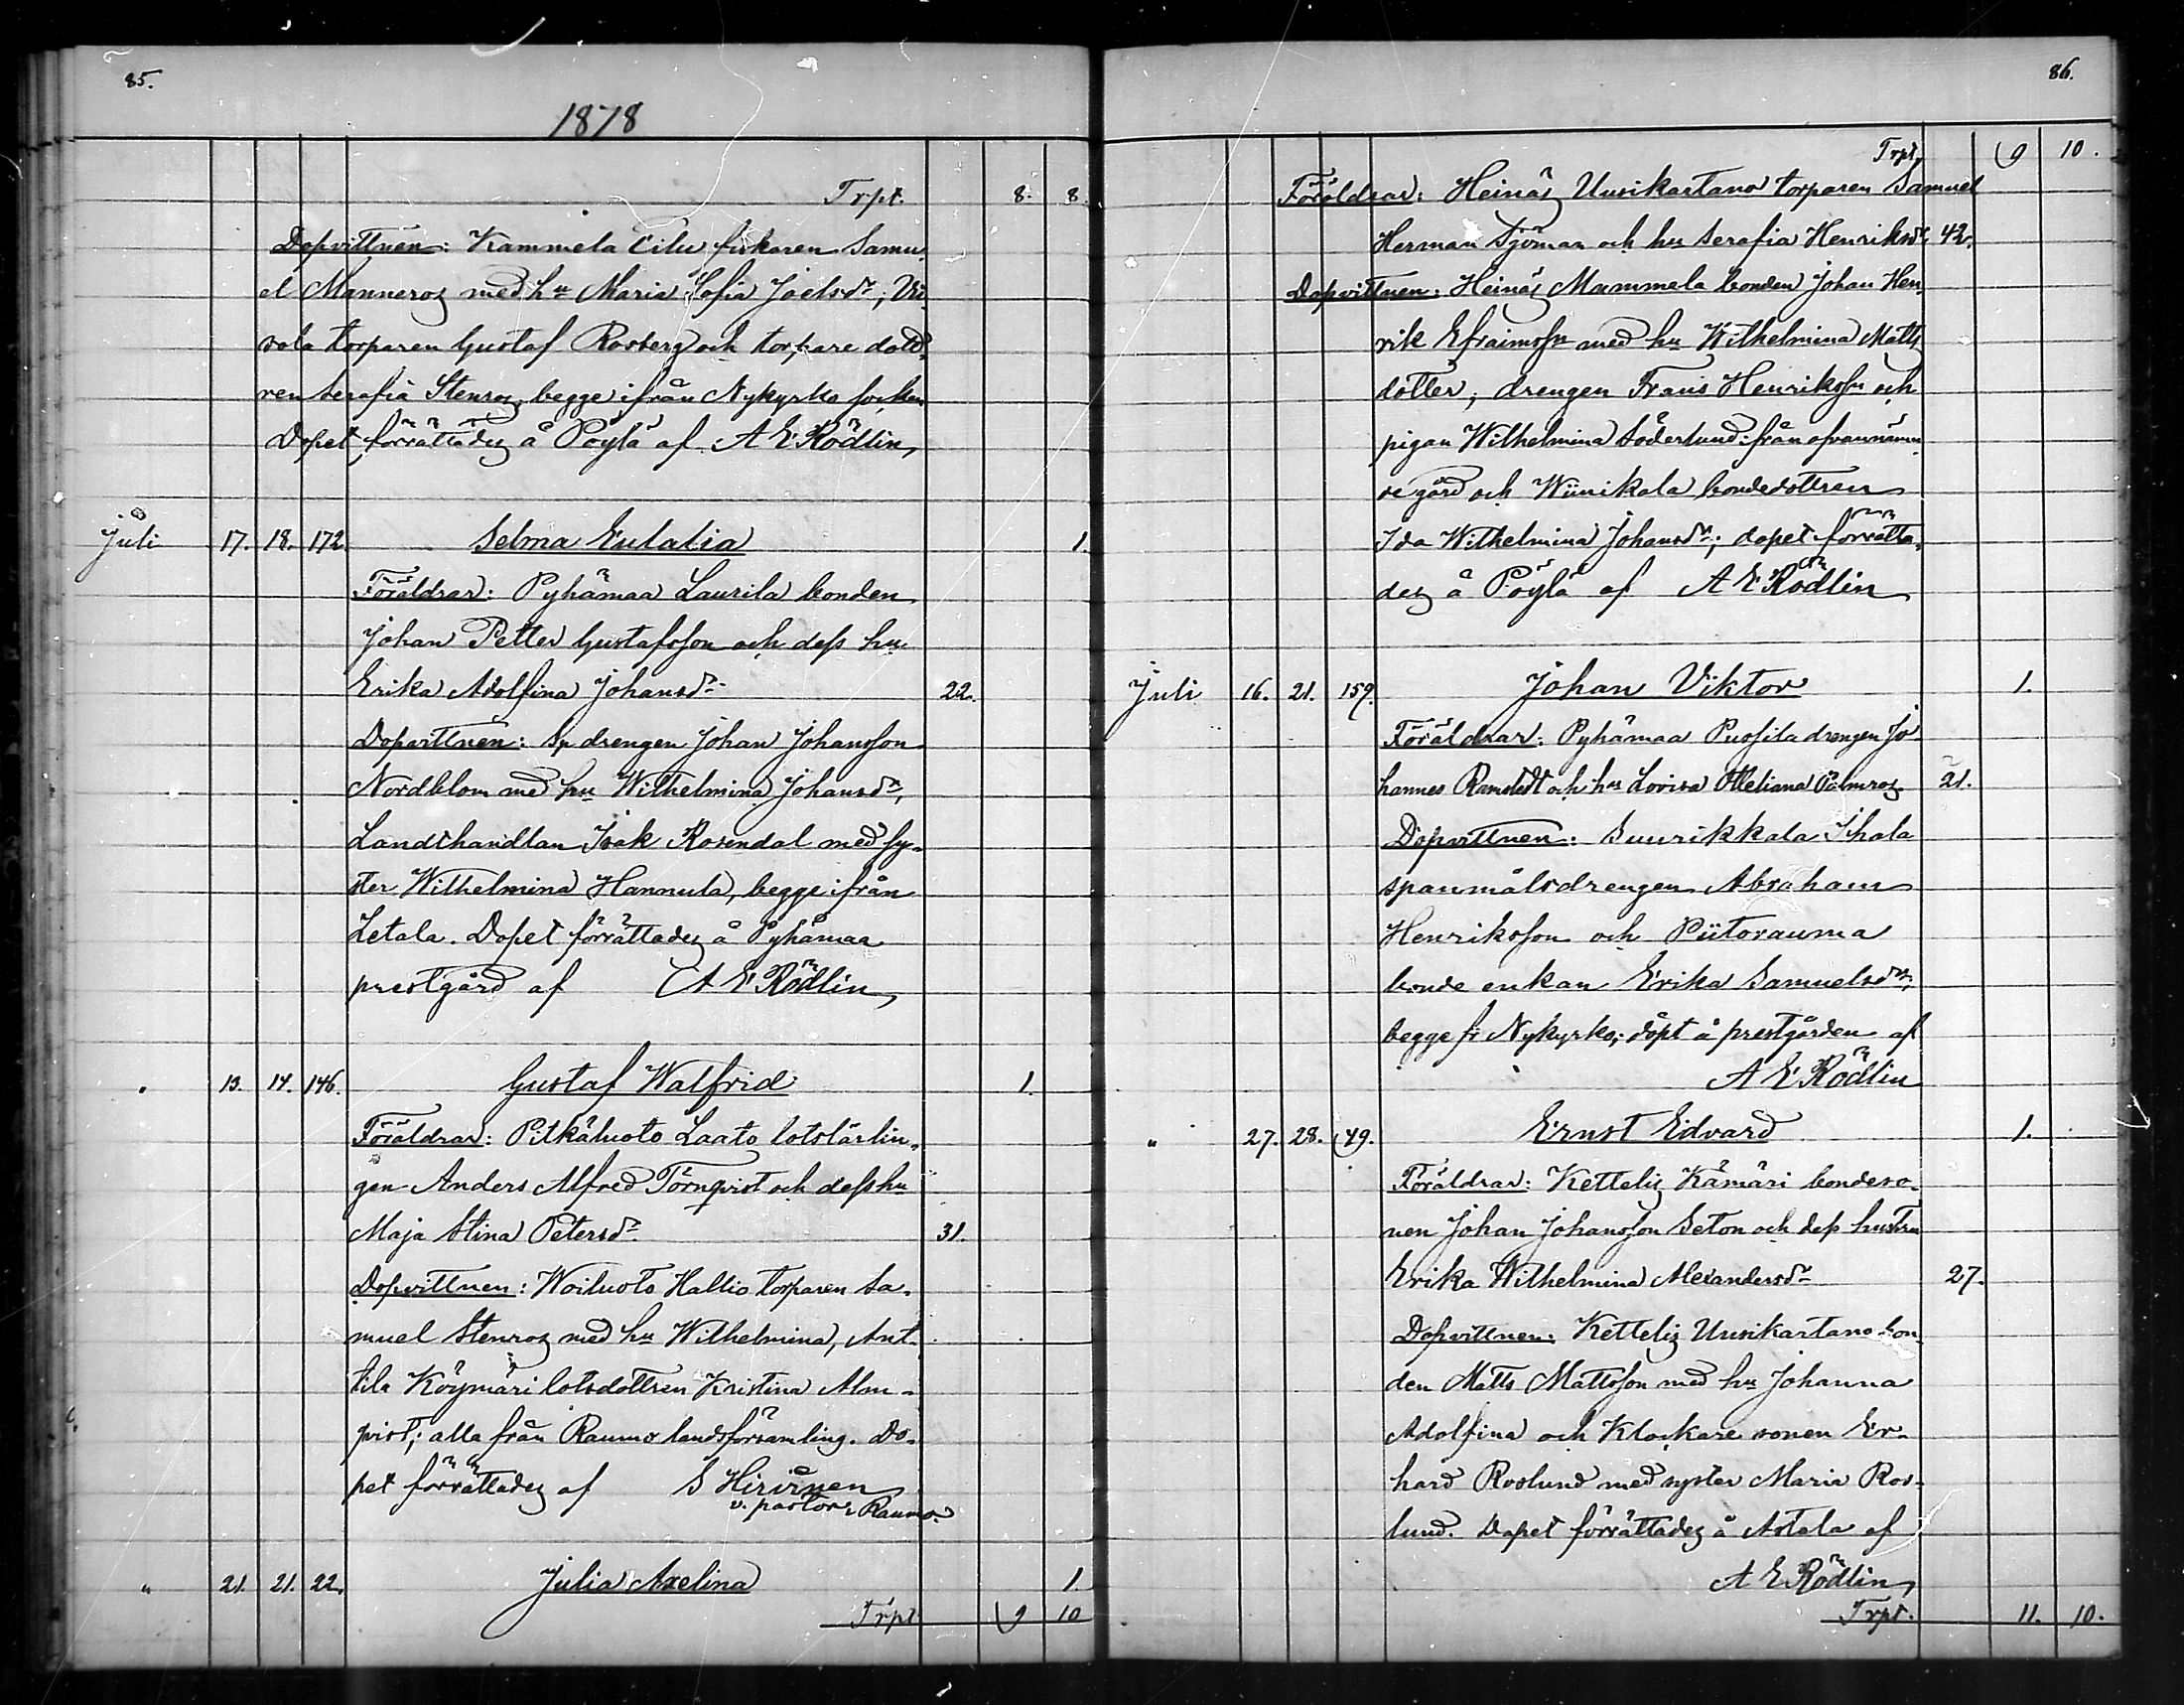 85.
1878
Trpt. 8. 8.
Dopvittnen: Kammela Eilu fiskaren Samu-
el Manneros med hu Maria Sofia Joelsdr; Vri-
vola torparen Gustaf Rosberg och torpare dott-
ren Serafia Stenros, begge ifrån Nykyrko socken
Dopet förrättades å Pöylä af A E Rödlin
Juli 17. 18. 172. Selma Eulalia 1.
Föräldrar: Pyhämaa Laurila bonden
Johan Petter Gustafsson och dess hu
Erika Adolfina Johansdr 22.
Dopvittnen: Sp drengen Johan Johansson
Nordblom med hu Wilhelmina Johansdr,
Landthandlan Isak Rosendal med sy-
ster Wilhelmina Hannula, begge ifrån
Letala. Dopet förrättades å Pyhämaa
prestgård af A E Rödlin
" 13. 14. 146. Gustaf Walfrid 1.
Föräldrar: Pitkäluoto Laato lotslärlin-
gen Anders Alfred Törnqvist och dess hu
Maja Stina Petersdr 31.
Dopvittnen: Woiluoto Hallio torparen Sa-
muel Stenros med hu Wilhelmina, Ant-
tila Köymäri lotsdottren Kristina Alm-
qvist; alla från Raumo landsförsamling. Do-
pet förrättades af S Hirvinen
v. pastor i Raumo.
" 21. 21. 22. Julia Axelina 1
Trpt 9 10
86.
Trpt. 9 10.
Föräldrar: Heinäs Uusikartano torparen Samuel
Herman Sjöman och hu Serafia Henriksdr 42.
Dopvittnen: Heinäs Mammela bonden Johan Hen-
rik Efraimsson med hu Wilhelmina Matts
dotter; drengen Frans Henriksson och
pigan Wilhelmina Söderlund från ofvannämn-
de gård och Wiinikala bondedottren
Ida Wilhelmina Johansdr; dopet förrätta-
des å Pöylä af A E Rödlin
Juli 16. 21. 159. Johan Viktor 1.
Föräldrar: Pyhämaa Puosila drengen Jo-
hannes Ramstedt och hu Lovisa Otteliana Palmros 21.
Dopvittnen: Suurikkala Ihala
spanmålsdrengen Abraham
Henriksson och Piitorauma
bonde enkan Erika Samuelsdr,
begge fr Nykyrko; döpt å prestgården af
A E Rödlin
" 27. 28. 49. Ernst Edvard 1.
Föräldrar: Kettelis Kämäri bondeso-
nen Johan Johansson Seton och dess hustru
Erika Wilhelmina Alexandersdr 27.
Dopvittnen: Kettelis Uusikartano bon-
den Matts Mattsson med hu Johanna
Adolfina och Klockare sonen Er-
hard Roslund med syster Maria Ros-
lund. Dopet förrättades å Astala af
A E Rödlin
Trpt. 11. 10.